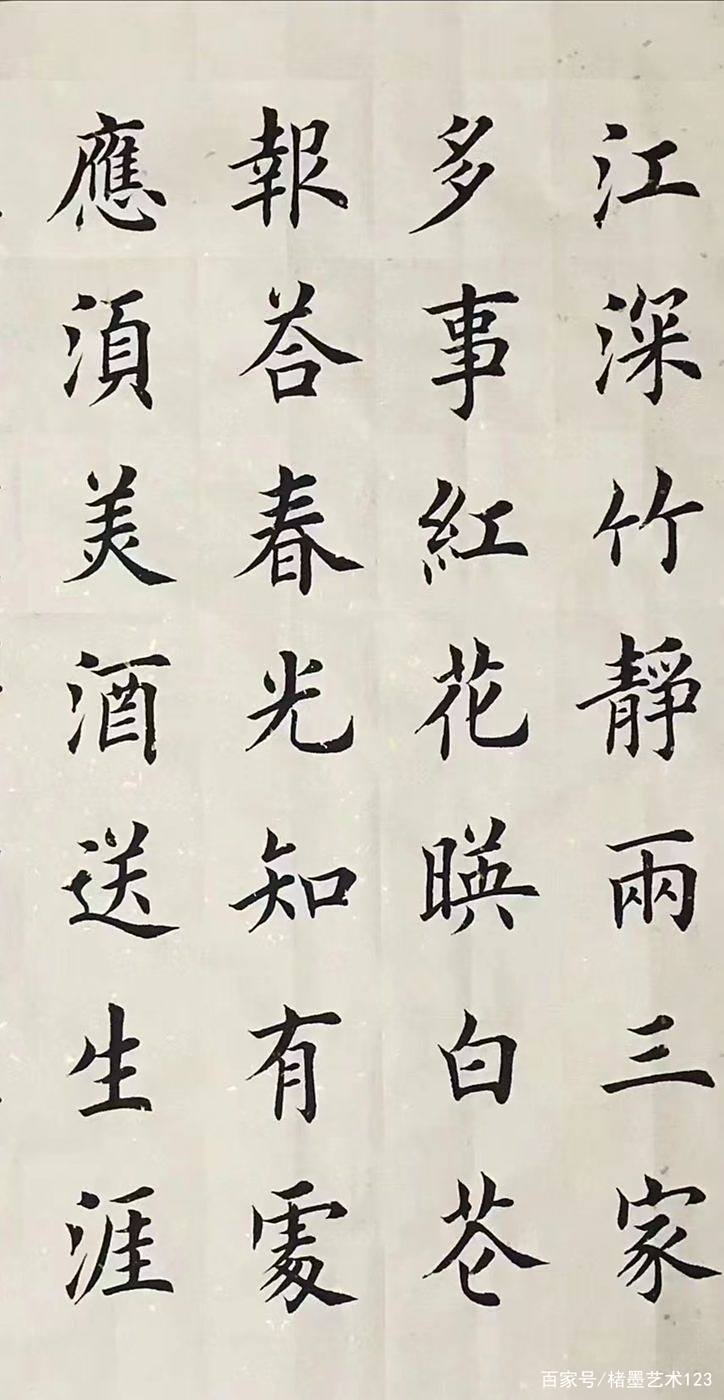 江深竹靜兩三家
多事紅花暎白芲
報荅春光知有處
應湏美酒送生涯
百家号/楮墨艺术123